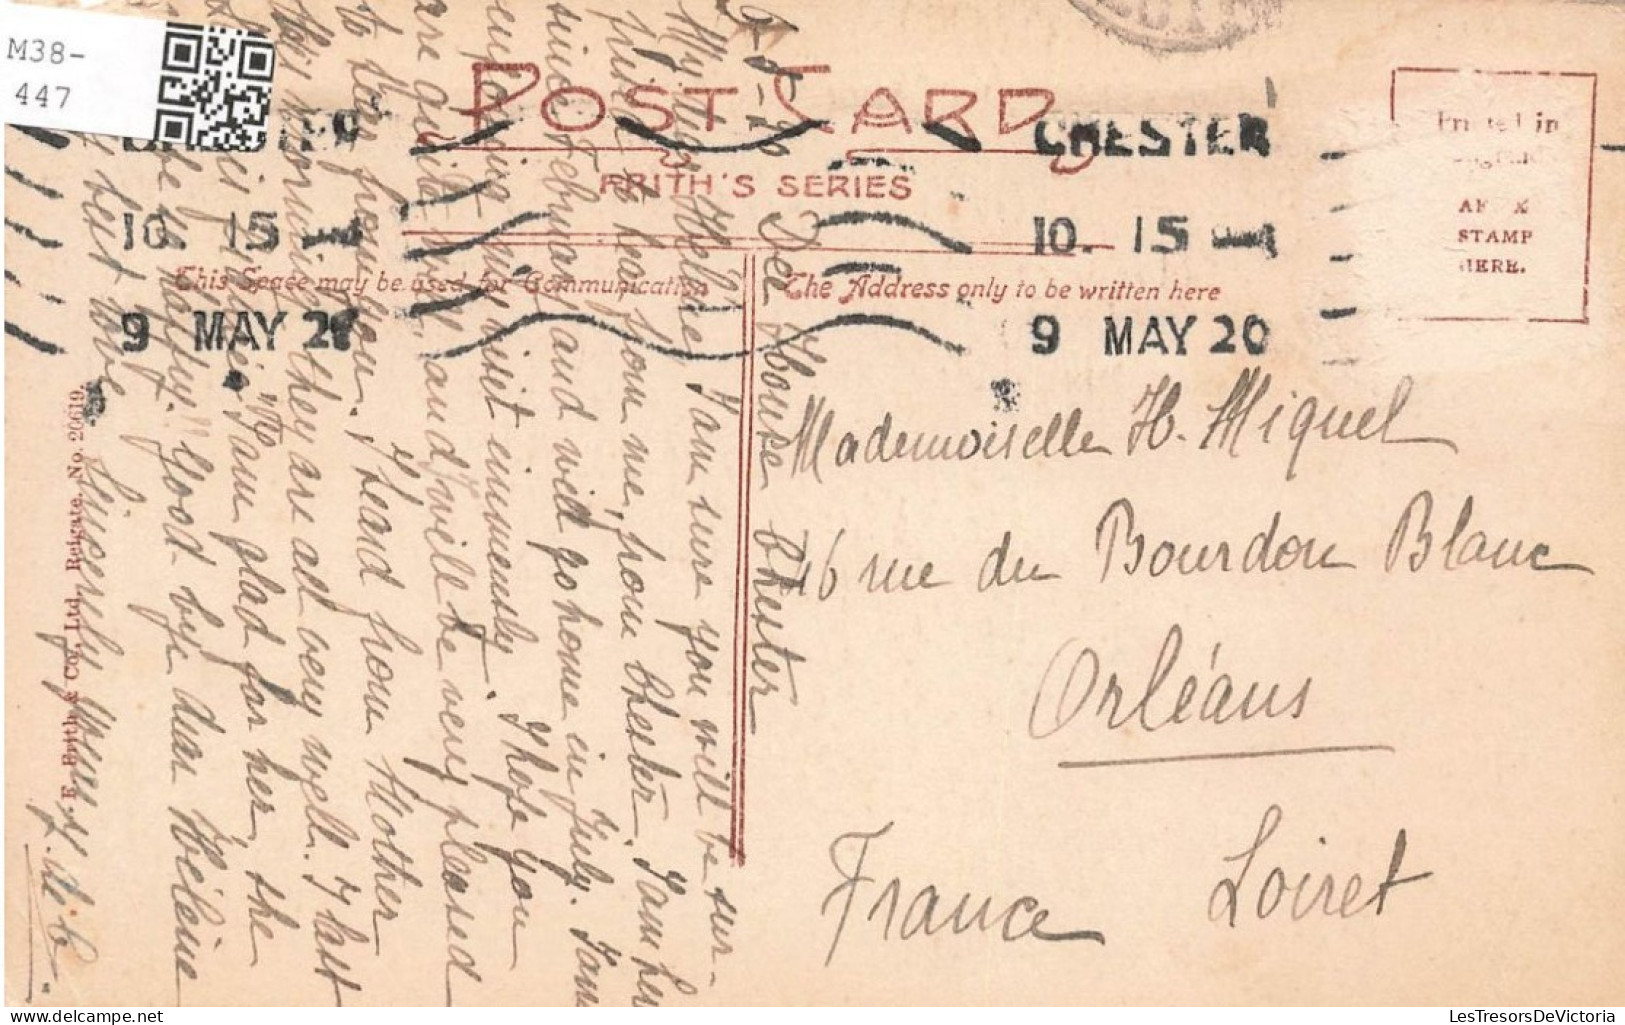 M38-
447
POST CARD
FRITH'S SERIES
CHESTER
10. 15
9 MAY 20
CHESTER
10. 15
9 MAY 20
Printed in
England
AFFIX
STAMP
HERE.
This Space may be used for Communication
The Address only to be written here
F. Frith & Co., Ltd., Reigate. No. 20619.
Dee House Chester
My dear Hélène, I am sure you will be sur-
prised to hear from me, from Chester. I am here
since February and will go home in July. I am
enjoying my visit immensely. I hope you
are quite well, and will be very pleased
to hear from you. I heard from Mother
this morning, they are all very well.
I am glad for her, the
be happy." Good bye dear Hélène
best love. Sincerely yours
Mademoiselle H. Miquel
46 rue du Bourdon Blanc
Orléans
Loiret
France
LesTresorsDeVictoria